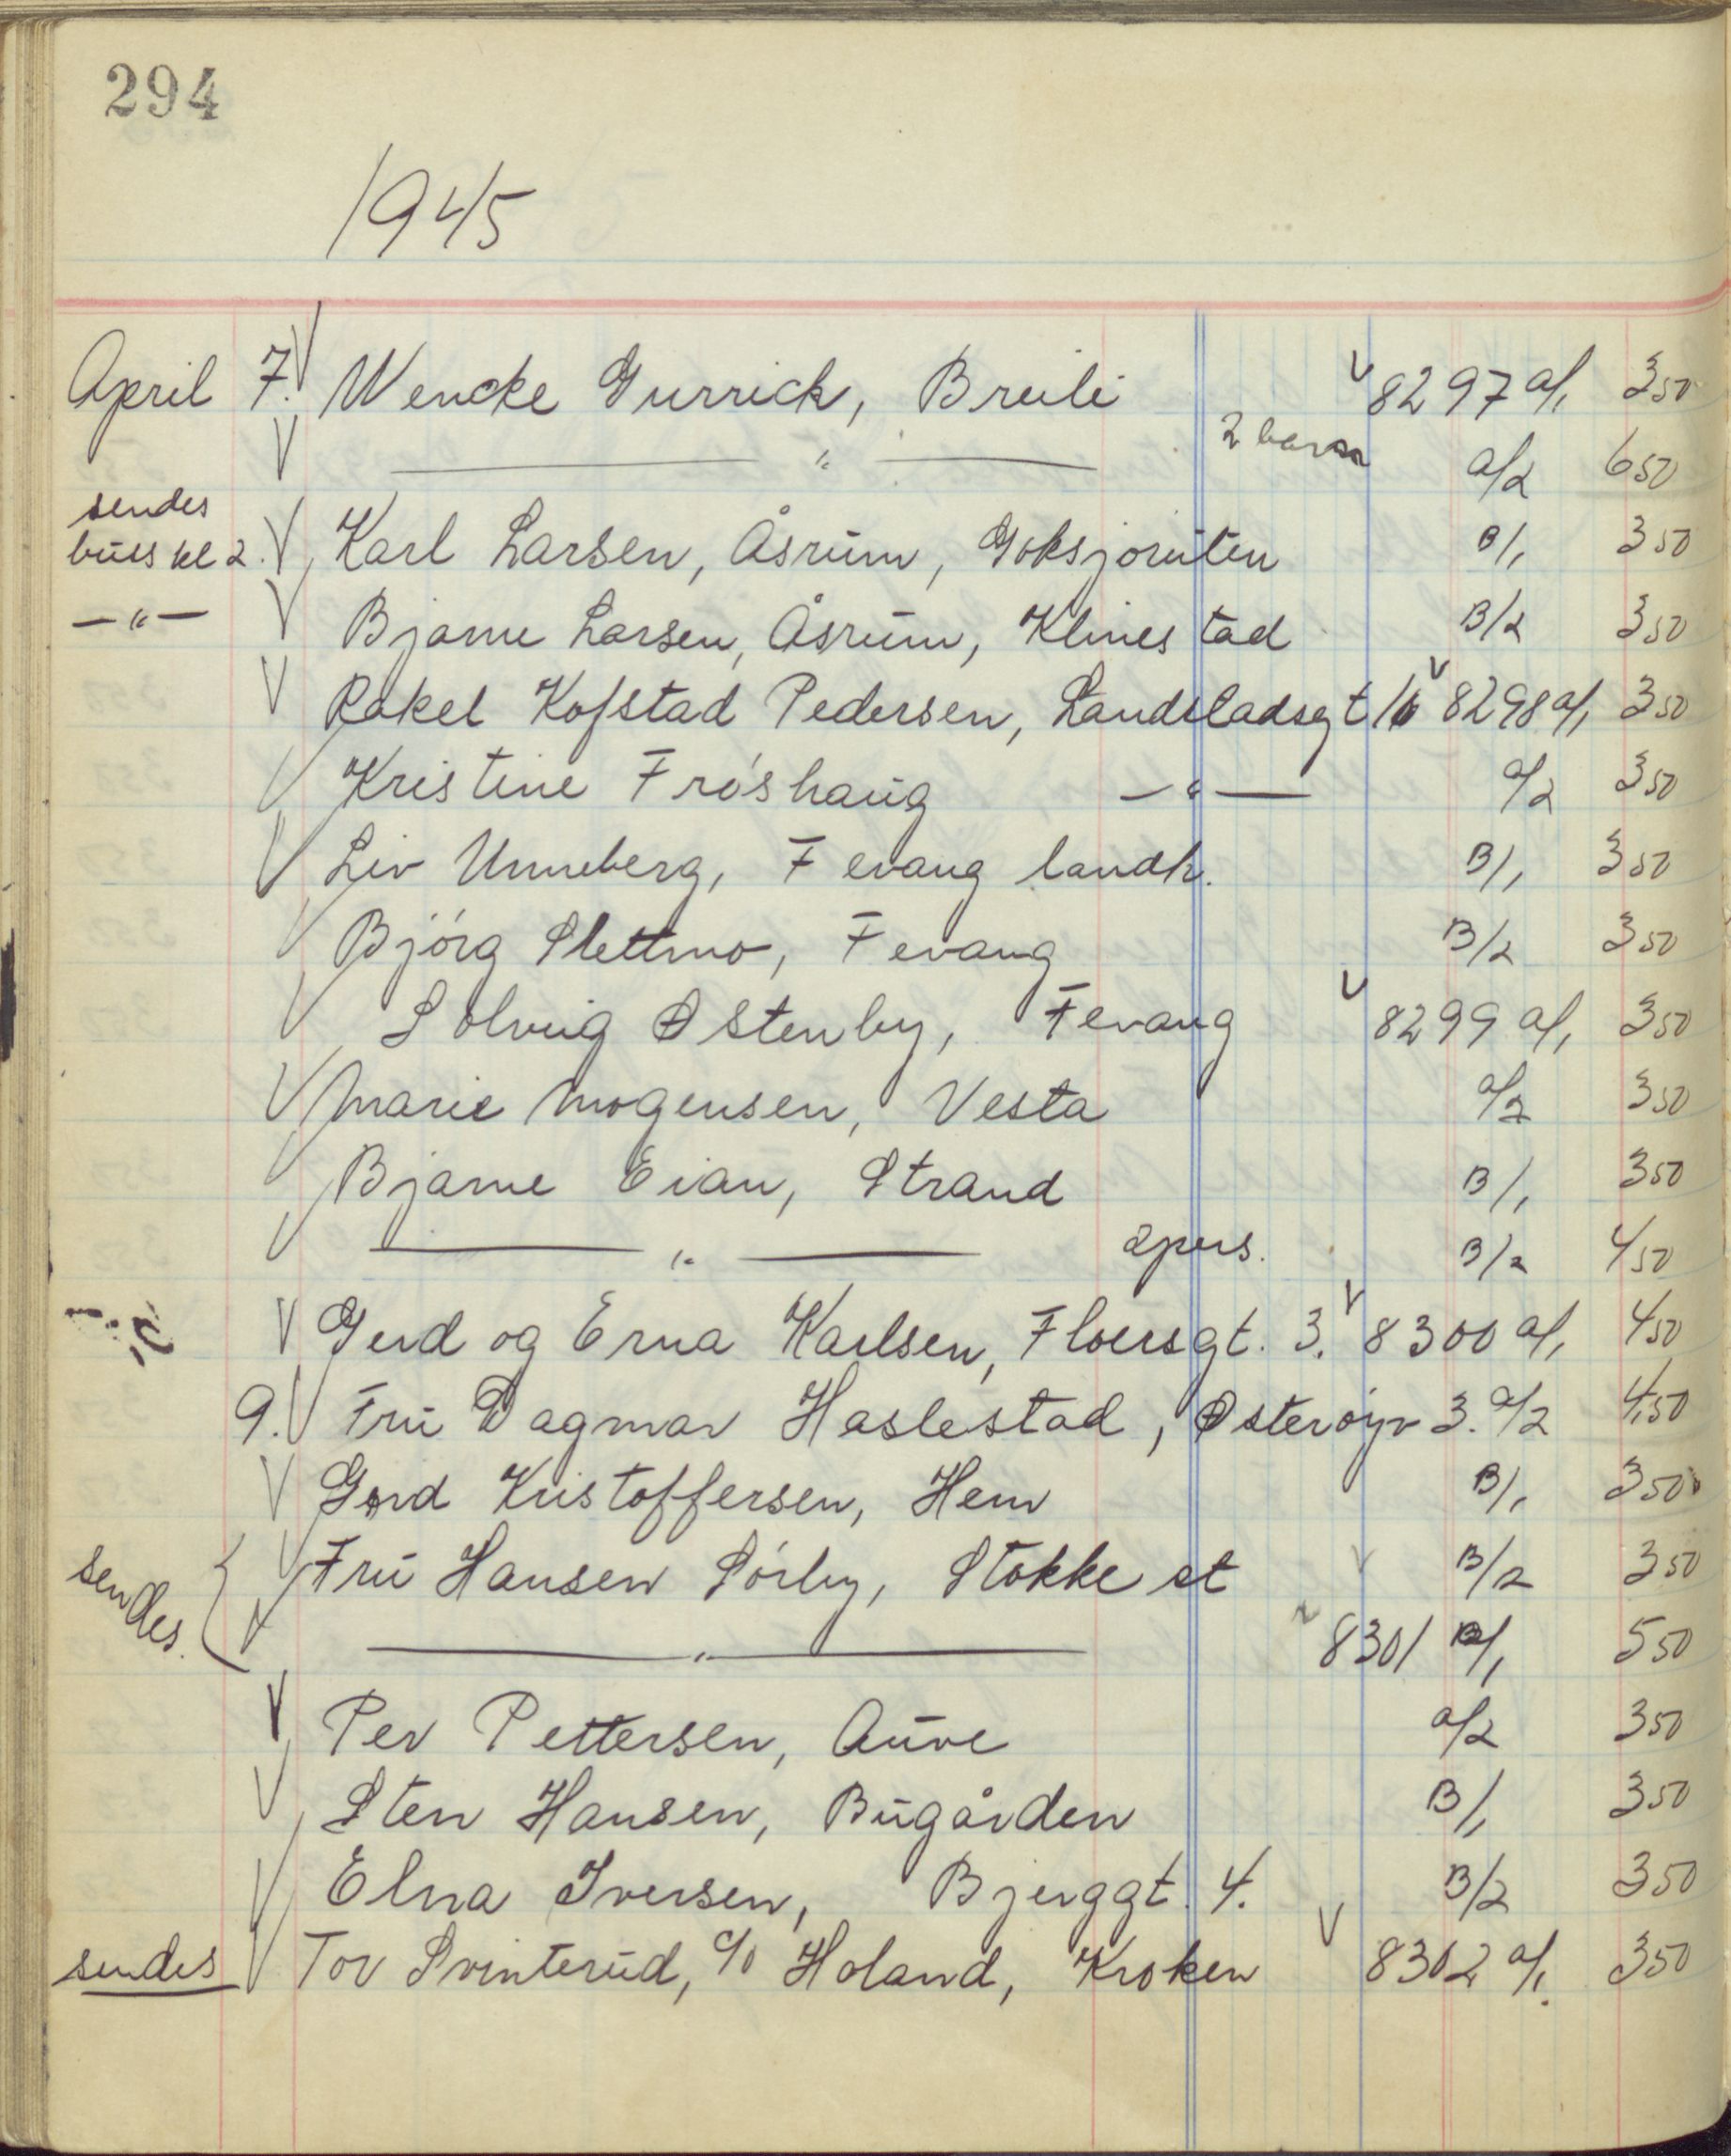 294
1945
April 7. V Wencke Gurrick, Breili V 8297 a/1 3 50
V — " — 2 barn a/2 6 50
sendes
buss kl 2. V Karl Larsen, Åsrum, Goksjoruten B/1 3 50
— " — V Bjarne Larsen, Åsrum, Klinestad B/2 3 50
V Rakel Kofstad Pedersen, Landstadsgt 16 V 8298 a/1 3 50
V Kristine Fróshaug — " — a/2 3 50
V Liv Unneberg, Fevang landh. B/1 3 50
V Bjórg Slettmo, Fevang B/2 3 50
V Solveig Østenby, Fevang V 8299 a/1 3 50
V Marie Mogensen, Vesta a/2 3 50
V Bjarne Eian, Strand B/1 3 50
V — " — 2 pers. B/2 4 50
V Gerd og Erna Karlsen, Floersgt. 3. V 8300 a/1 4 50
9. V Fru Dagmar Haslestad, Østeröyv 3. a/2 4,50
V Gerd Kristoffersen, Hem B/1 3 50
sendes. { V Fru Hansen Sórby, Stokke st V B/2 3 50
V — " — V 8301 a/1 5 50
V Per Pettersen, Aure a/2 3 50
V Sten Hansen, Bugården B/1 3 50
V Elna Iversen, Bjerggt. 4. B/2 3 50
sendes V Tor Svinterud, c/o Holand, Kroken V 8302 a/1. 3 50